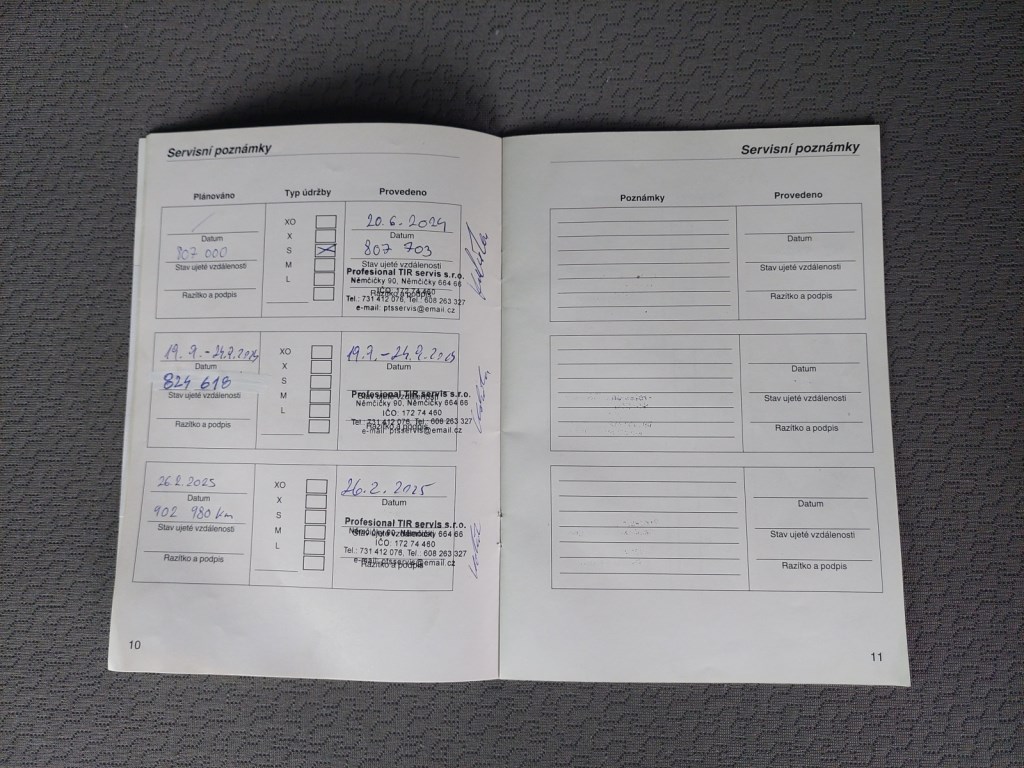 Servisní poznámky
Plánováno Typ údržby Provedeno
XO 20.6.2024
Datum X Datum
807 000 S 807 703
Stav ujeté vzdálenosti M Stav ujeté vzdálenosti
L Profesional TIR servis s.r.o.
Němčičky 90, Němčičky 664 66
Razítko a podpis Razítko a podpis
IČO: 172 74 460
Tel.: 731 412 076, Tel.: 608 263 327
e-mail: ptsservis@email.cz
XO
Datum X Datum
824 618 S
Stav ujeté vzdálenosti M
Profesional TIR servis s.r.o.
Němčičky 90, Němčičky 664 66
L IČO: 172 74 460
Razítko a podpis Razítko a podpis
Tel.: 731 412 076, Tel.: 608 263 327
e-mail: ptsservis@email.cz
26.2.2025 XO 26.2.2025
Datum X Datum
902 980 km S
Stav ujeté vzdálenosti M Stav ujeté vzdálenosti
Profesional TIR servis s.r.o.
Němčičky 90, Němčičky 664 66
L IČO: 172 74 460
Tel.: 731 412 076, Tel.: 608 263 327
Razítko a podpis Razítko a podpis
e-mail: ptsservis@email.cz
10
Servisní poznámky
Poznámky Provedeno
Datum
Stav ujeté vzdálenosti
Razítko a podpis
Datum
Stav ujeté vzdálenosti
Razítko a podpis
Datum
Stav ujeté vzdálenosti
Razítko a podpis
11